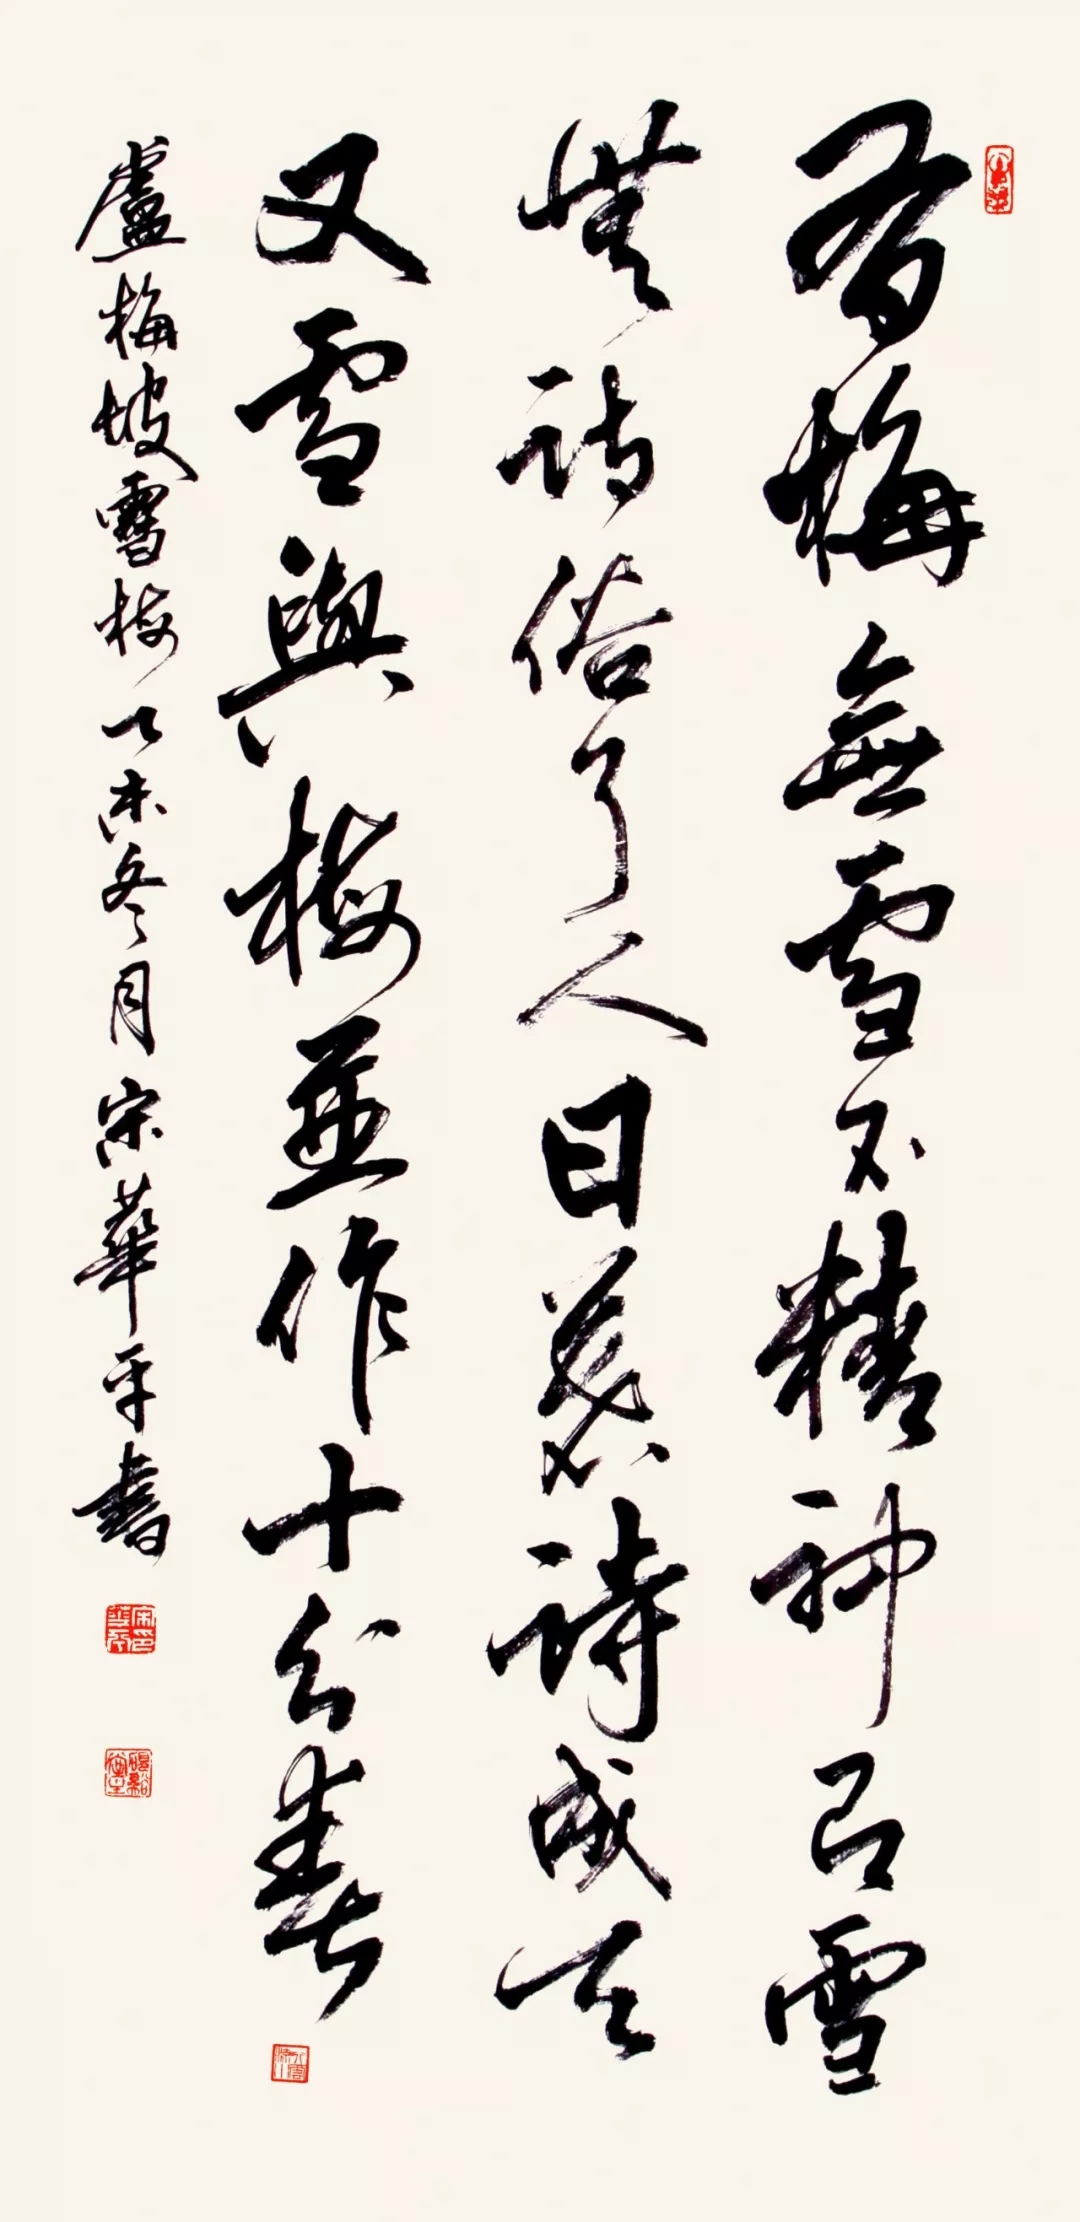 有梅無雪不精神有雪
無詩俗了人日暮詩成天
又雪與梅並作十分春
盧梅坡雪梅乙未冬月宋華平書